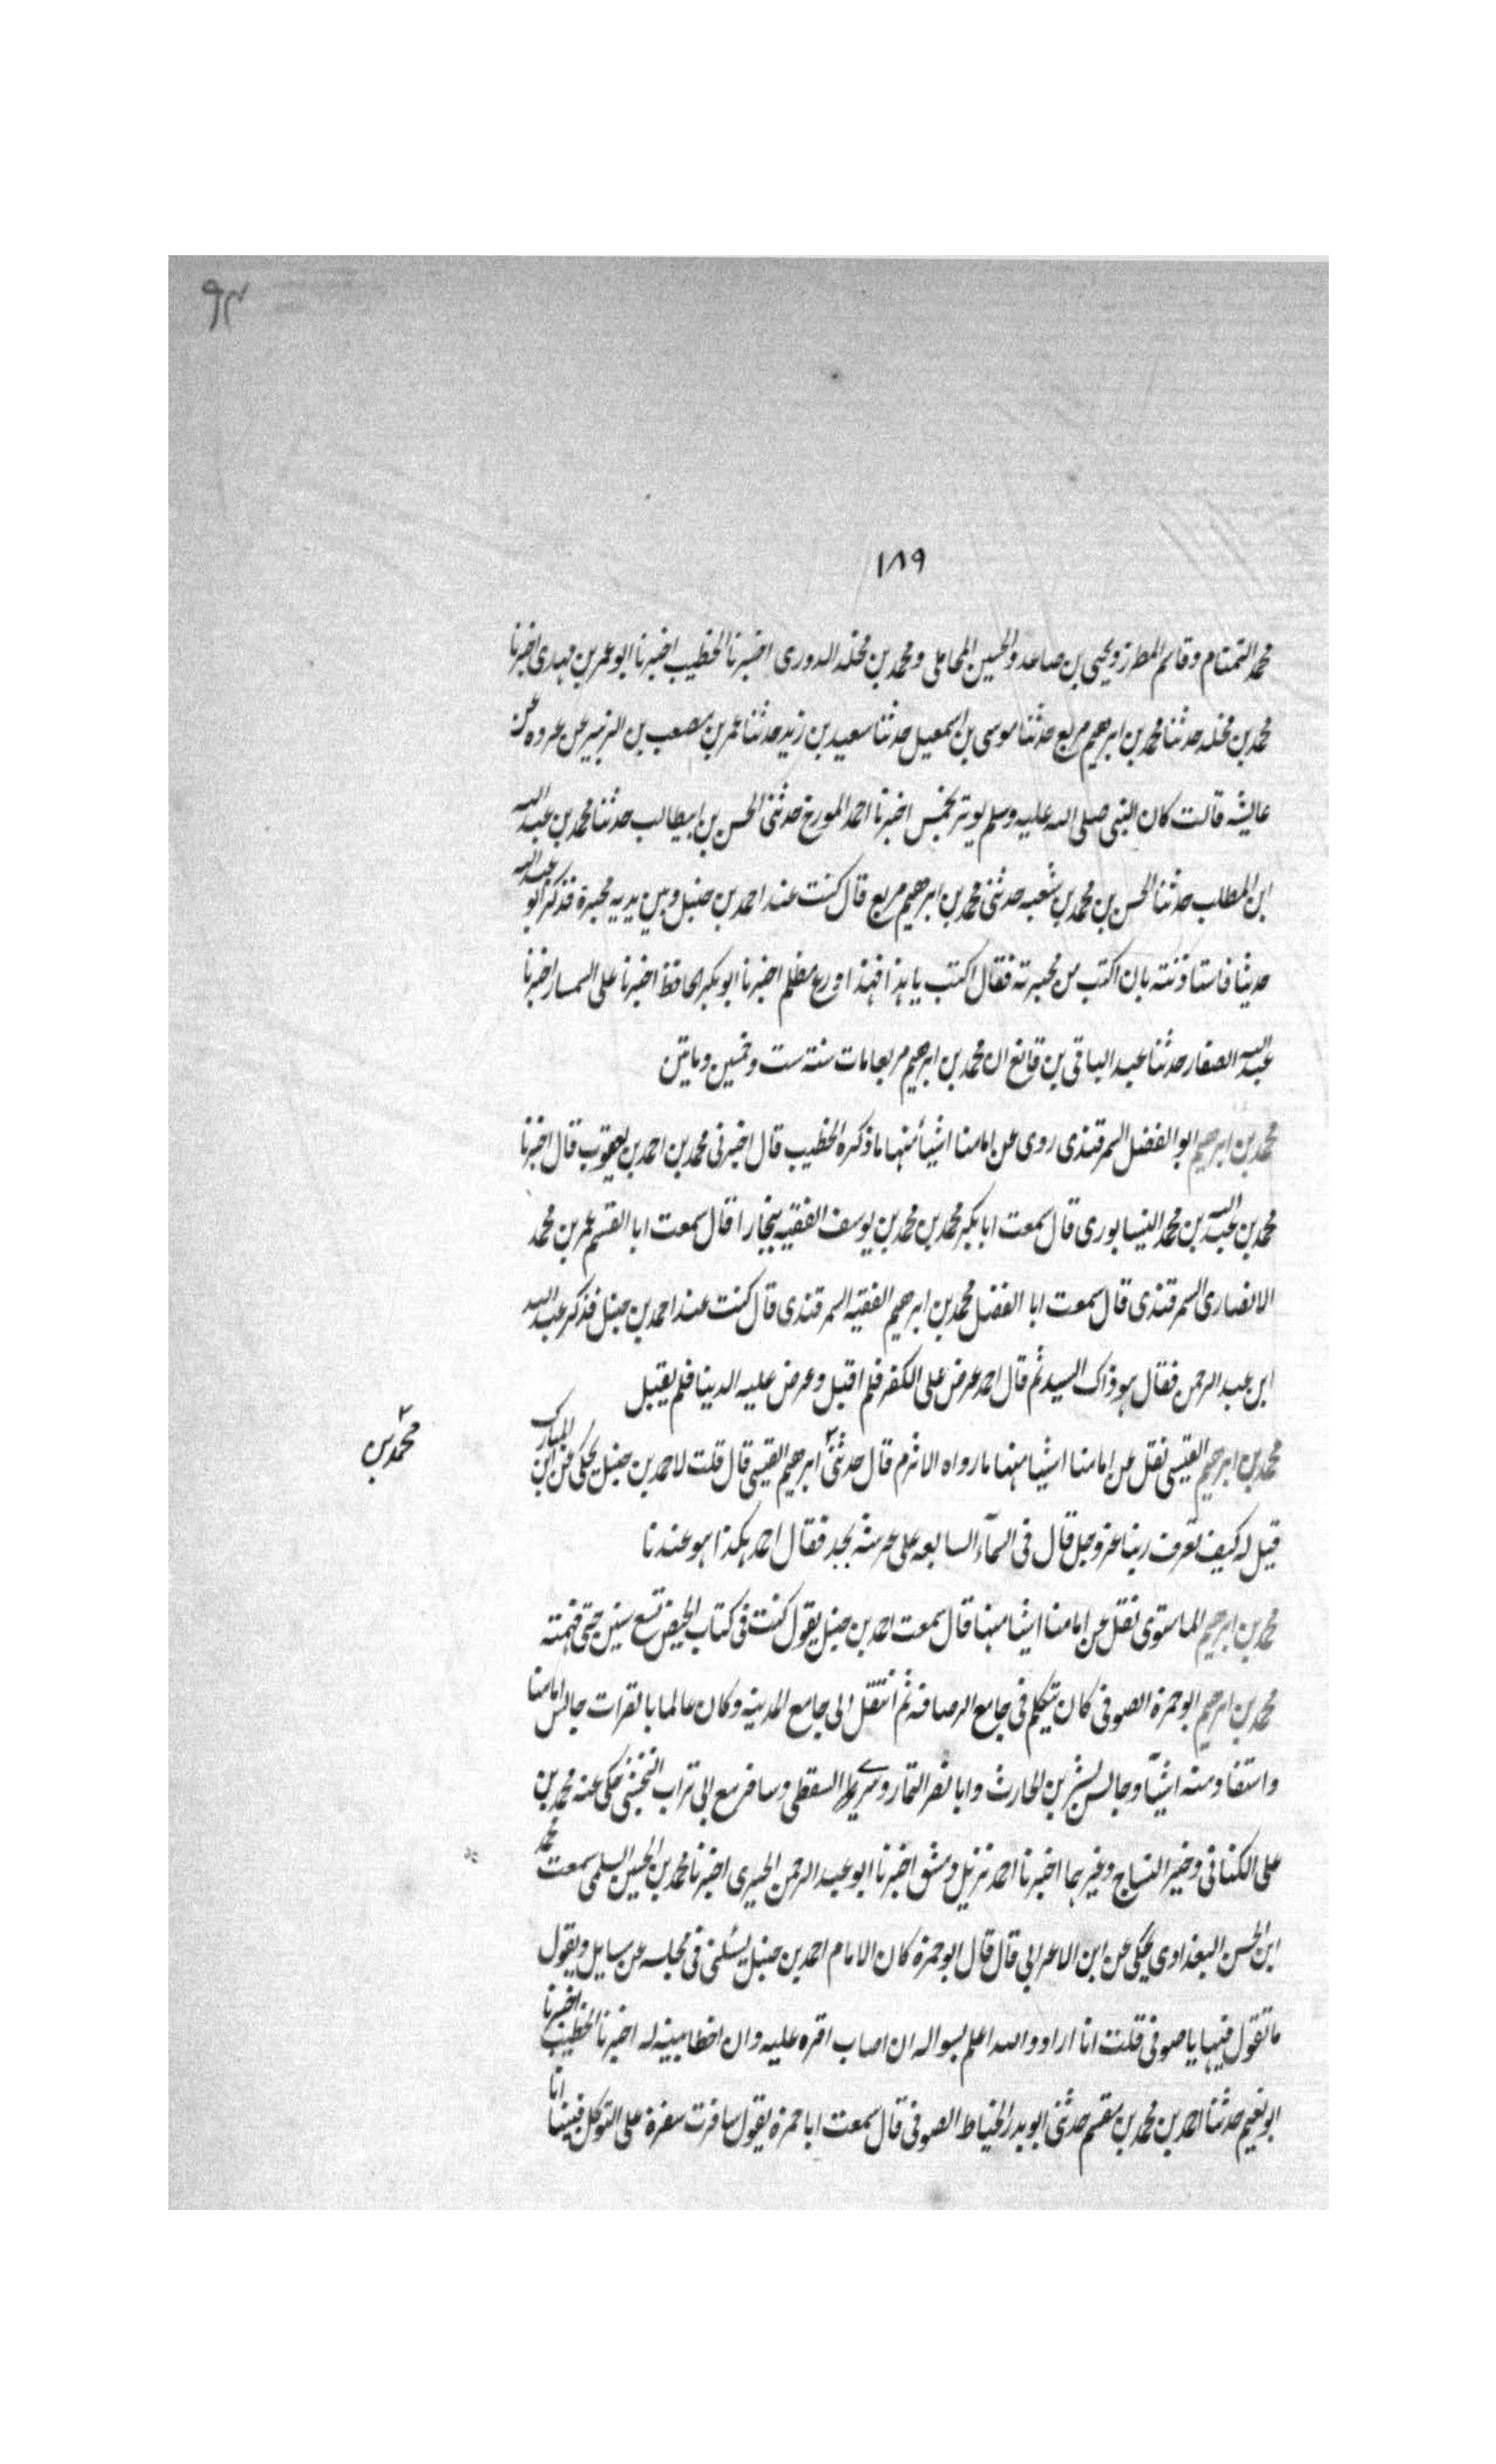 ٩٣
١٨٩
محمد التمتام وقاسم المطرز ويحيى بن صاعد والحسين المحاملى ومحمد بن مخلد الدورى اخبرنا الخطيب اخبرنا ابو عمر بن مهدى اخبرنا
محمد بن مخلد حدثنا محمد بن ابرهيم مربع حدثنا موسى بن اسمعيل حدثنا سعيد بن زيد حدثنا عمر بن مصعب بن الزبير عن عروه عن
عايشه قالت كان النبى صلى الله عليه وسلم يوتر بخمس اخبرنا احمد المورخ حدثنى الحسن بن ابيطالب حدثنا محمد بن عبد الله
ابن المطلب حدثنا الحسن بن محمد بن شعبه حدثنى محمد بن ابرهيم مربع قال كنت عند احمد بن حنبل وبين يديه محبرة فذكر ابو عبد الله
حديثا فاستاذنته بان اكتب من محبرته فقال اكتب يا هذا فهذا ورع مظلم اخبرنا ابو بكر الحافظ اخبرنا على السمسار اخبرنا
عبد الله الصفار حدثنا عبد الباقى بن قانع ان محمد بن ابرهيم مربعا مات سنة ست وخمسين وماتين
محمد بن ابرهيم ابو الفضل السمرقندى روى عن امامنا اشيأ منها ما ذكره الخطيب قال اخبرنى محمد بن احمد بن يعقوب قال اخبرنا
محمد بن عبد الله بن محمد النيسابورى قال سمعت ابا بكر محمد بن محمد بن يوسف الفقيه ببخارا قال سمعت ابا القسم عمر بن محمد
الانصارى السمرقندى قال سمعت ابا الفضل محمد بن ابرهيم الفقيه السمرقندى قال كنت عند احمد بن حنبل فذكر عبد الله
ابن عبد الرحمن فقال هو ذاك السيد ثم قال احمد عرض على الكفر فلم اقبل وعرض عليه الدينا فلم يقبل
محمد بن ابرهيم القيسى نقل عن امامنا اشيا منها ما رواه الاثرم قال حدثنى ابرهيم القيسى قال قلت لاحمد بن حنبل يحكى عن ابن المبارك
محمد بن
قيل له كيف تعرف ربنا عز وجل قال فى السمآء السابعه على عرشه بحد فقال احمد هكذا هو عندنا
محمد بن ابرهيم الماستوى نقل عن امامنا اشيا منها قال سمعت احمد بن حنبل يقول كنت فى كتاب الحيض تسع سنين حتى فهمته
محمد بن ابرهيم ابو حمزة الصوفى كان يتكلم فى جامع الرصافه ثم انتقل الى جامع المدينه وكان عالما بالقرات جالس امامنا
واستفاد منه اشيآ وجالس بشر بن الحارث وابا نصر التمار وسرى السقطى وسافر مع ابى تراب النخشبى حكى عنه محمد بن
على الكنانى وخير النساج وغيرهما اخبرنا احمد نزيل دمشق اخبرنا ابو عبد الرحمن الحيرى اخبرنا محمد بن الحسين السلمى سمعت محمد
ابن الحسن البغدادى يحكى عن ابن الاعرابى قال قال ابو حمزة كان الامام احمد بن حنبل يسئلنى فى مجلسه عن مسايل ويقول
ما تقول فيها يا صوفى قلت انا اراد والله اعلم بسواله ان اصاب اقره عليه وان اخطا بينه له اخبرنا الخطيب اخبرنا
ابو نعيم حدثنا احمد بن محمد بن مقسم حدثنى ابو بدر الخياط الصوفى قال سمعت ابا حمزة يقول سافرت سفرة على التوكل فبينا انا